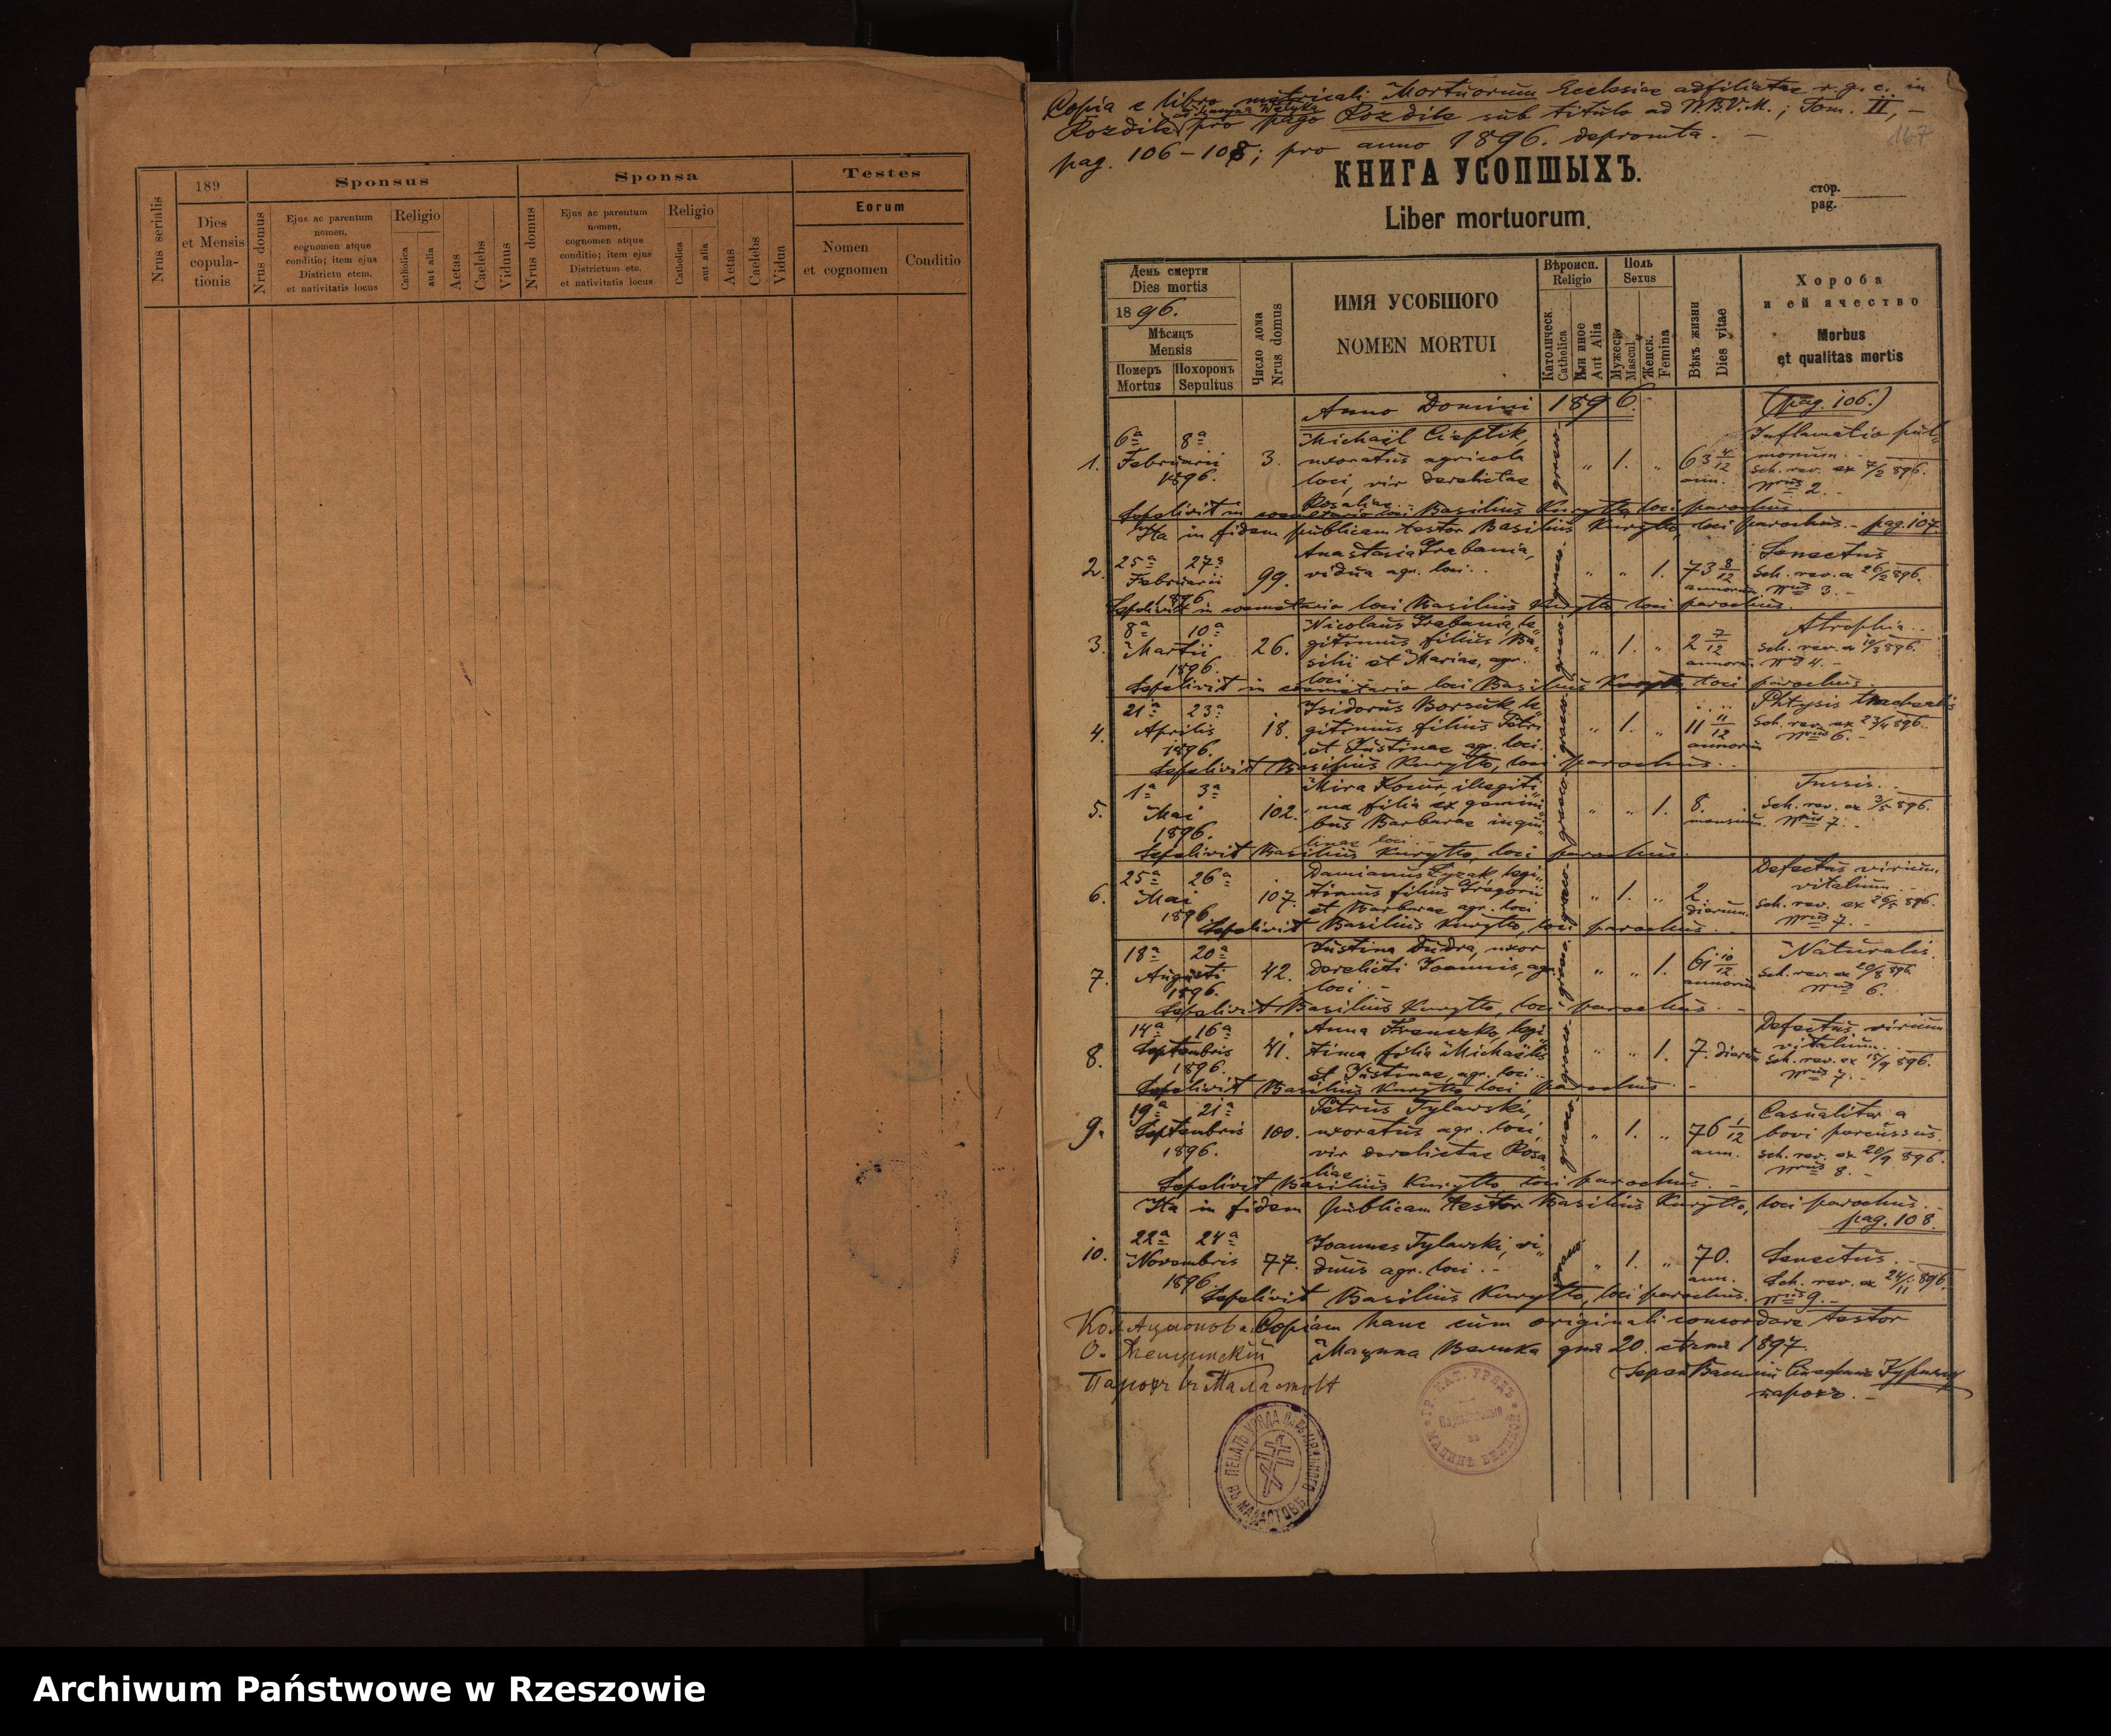 Nrus serialis
189
Dies
et Mensis
copula-
tionis
Sponsus
Nrus domus
Ejus ac parentum
nomen,
cognomen atque
conditio; item ejus
Districtu etcm.
et nativitatis locus
Religio
Catholica
aut alia
Aetas
Caelebs
Viduus
Sponsa
Nrus domus
Ejus ac parentum
nomen,
cognomen atque
conditio; item ejus
Districtum etc.
et nativitatis locus
Religio
Catholica
aut alia
Aetas
Caelebs
Vidua
Testes
Eorum
Nomen
et cognomen
Conditio
Copia e libro metricali Mortuorum Ecclesiae adfiliatae r. g. c. in
Rozdile pro pago Rozdile sub titulo ad N.B.V.M.; Tom. II, –
pag. 106–108; pro anno 1896. depromta. –
167
КНИГА УСОПШЫХЪ.
Liber mortuorum.
стор.
pag.
День смерти
Dies mortis
1896.
Мѣсяцъ
Mensis
Померъ Похоронъ
Mortus Sepultus
Число дома
Nrus domus
ИМЯ УСОБШОГО
NOMEN MORTUI
Вѣроисп.
Religio
Католическ.
Catholica
Или иное
Aut Alia
Полъ
Sexus
Мужеск.
Mascul.
Женск.
Femina
Вѣкъ жизни
Dies vitae
Хороба
и ей ячество
Morbus
et qualitas mortis
Anno Domini 1896. (pag. 106.)
1. 6ª 8ª
Februarii
1896.
3.
Michaël
uxoratus agricola
loci, vir derelictae
Rosaliae.
graeco.
„ 1. „
63 4/12
ann.
Inflamatio pul-
monum. –
Sch. rev. ex 7/2 896.
Nrus 2. –
Sepelivit in coemeterio loci Basilius Kuryłło, loci parochus.
Ita in fidem publicam testor Basilius Kuryłło, loci parochus. – pag. 107.
2. 25ª 27ª
Februarii
1896
99.
Anastasia Grabania,
vidua agr. loci. .
graeco.
„ „ 1.
73 8/12
annorum.
Senectus
Sch. rev. ex 26/2 896.
Nrus 3. –
Sepelivit in coemeterio loci Basilius Kuryłło loci parochus.
3. 8ª 10ª
Martii
1896.
26.
Nicolaus Grabania, le-
gitimus filius Ba-
silii et Mariae, agr.
loci.
graeco.
„ 1. „
2 7/12
annorum.
Atrophia. .
Sch. rev. ex 10/3 896.
Nrus 4. –
Sepelivit in coemeterio loci Basilius Kuryłło, loci parochus.
4. 21ª 23ª
Aprilis
1896.
18.
Isidorus Borsuk, le-
gitimus filius Petri
et Justinae agr. loci.
graeco.
„ 1. „
11 11/12
annorum
Phtysis
Sch. rev. ex 23/4 896.
Nrus 6. –
Sepelivit Basilius Kuryłło, loci parochus. .
5. 1ª 3ª
Mai
1896.
102.
Mira Kocur, illegiti-
ma filia ex gemini-
bus Barbarae inqui-
linae loci.
graeco.
„ „ 1.
8.
mensium.
Tussis. .
Sch. rev. ex 3/5 896.
Nrus 7. –
Sepelivit Basilius Kuryłło, loci parochus.
6. 25ª 26ª
Mai
1896
107.
Damianus Łyzak, legi-
timus filius Gregorii
et Barbarae agr. loci
graeco.
„ 1. „
2.
dierum.
Defectus virium
vitalium. –
Sch. rev. ex 26/5 896.
Nrus 7. –
Sepelivit Basilius Kuryłło, loci parochus. .
7. 18ª 20ª
Augusti
1896.
42.
Justina Dudra, uxor
derelicti Joannis, agr.
loci. –
graeco.
„ „ 1.
61 10/12
annorum
Naturalis.
Sch. rev. ex 20/8 896.
Nrus 6.
Sepelivit Basilius Kuryłło, loci parochus. –
8. 14ª 16ª
Septembris
1896.
41.
Anna Hrenczko, legi-
tima filia Michaëlis
et Justinae, agr. loci. .
graeco.
„ „ 1.
7. dierum
Defectus virium
vitalium. .
Sch. rev. ex 15/9 896.
Nrus 7. –
Sepelivit Basilius Kuryłło loci parochus. –
9. 19ª 21ª
Septembris
1896.
100.
Petrus Tylawski,
uxoratus agr. loci,
vir derelictae Rosa-
liae
graeco.
„ 1. „
76 1/12
ann.
Casualiter a
bovi percussus.
Sch. rev. ex 20/9 896.
Nrus 8. –
Sepelivit Basilius Kuryłło loci parochus. –
Ita in fidem publicam testor Basilius Kuryłło, loci parochus. –
pag. 108.
10. 22ª 24ª
Novembris
1896.
77.
Joannes Tylawski, vi-
duus agr. loci. –
graeco.
„ 1. „
70.
ann.
Senectus. –
Sch. rev. ex 24/11 896.
Nrus 9. –
Sepelivit Basilius Kuryłło, loci parochus.
Copiam hanc cum originali concordare testor
Мацина Велика дня 20. 1897.
парохъ. –
ПЕЧАТЬ УРЯДА ПАРОХІАЛЬНОГО ВЪ МАЛАСТОВѢ
ГР. КАТ. УРЯДЪ
МАЦИНѢ ВЕЛИКОЙ
Archiwum Państwowe w Rzeszowie